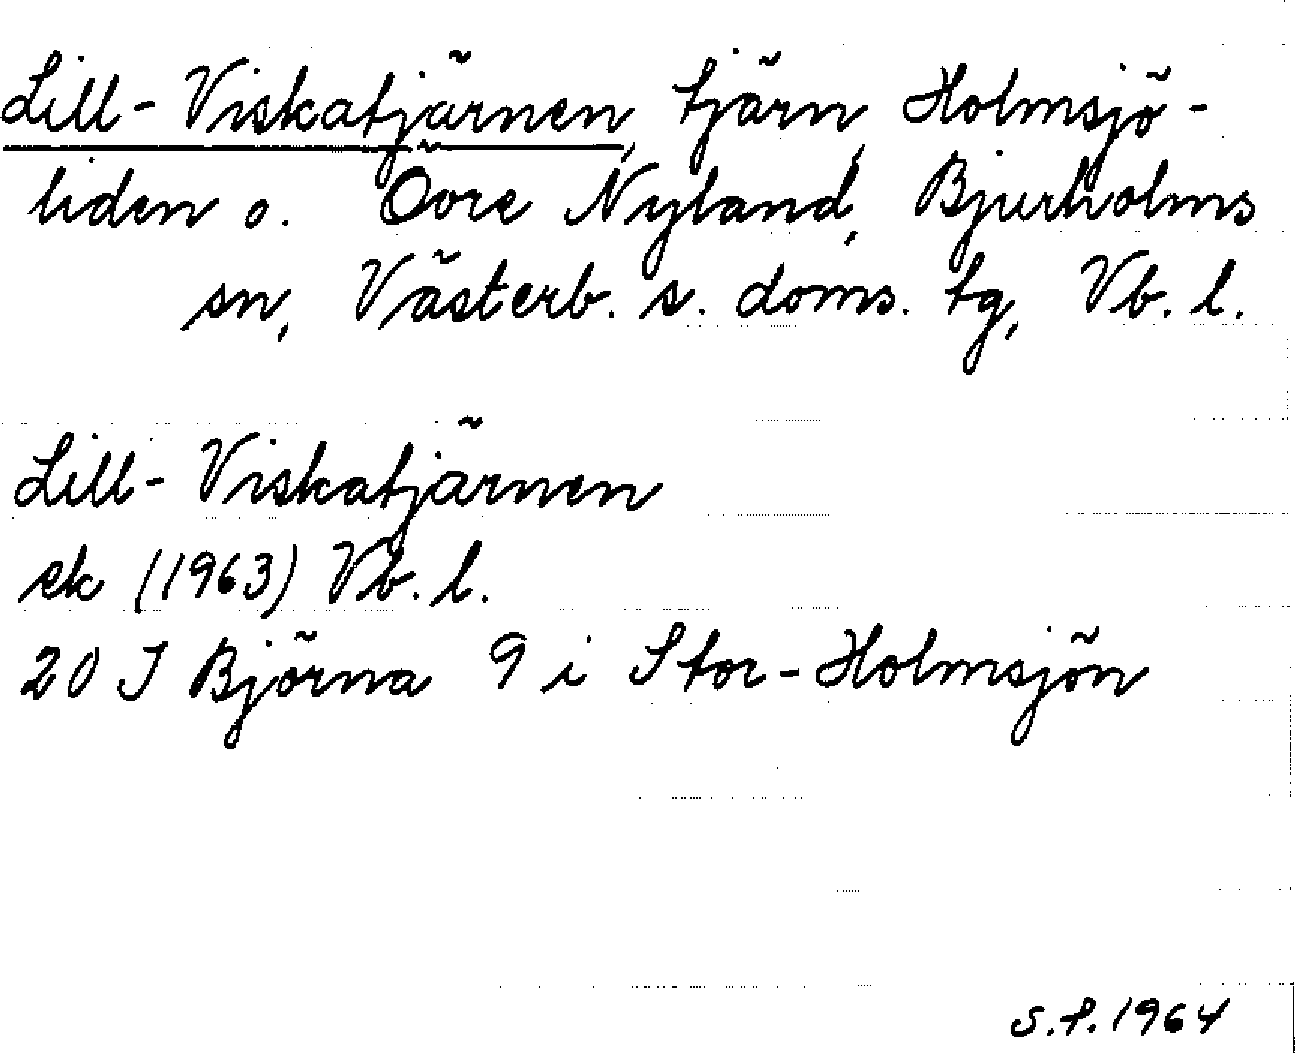 Lill-Viskatjärnen, tjärn, Holmsjö-
liden o. Öore Nyland, Bjurholms
sn, Västerb. s. doms. tg, Vb. l.
Lill-Viskatjärnen
ek (1963) Vb. l.
20 J Björna 9 i Stor-Holmsjön
S.F. 1964